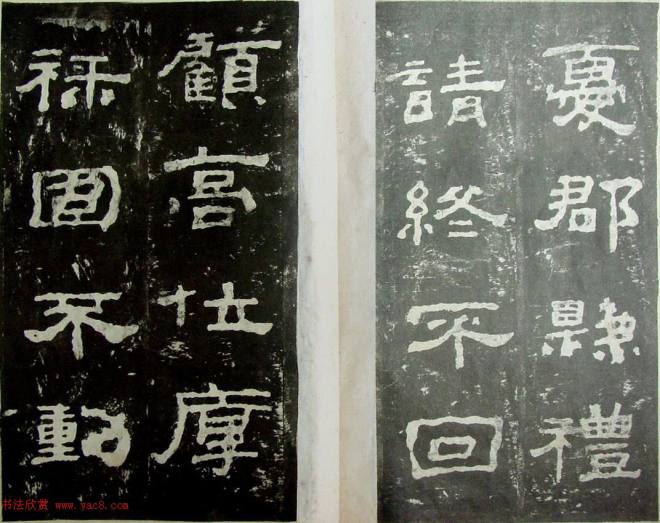 憂郡縣禮
請終不回
顧高位厚
祿固不動
书法欣赏 www.yac8.com